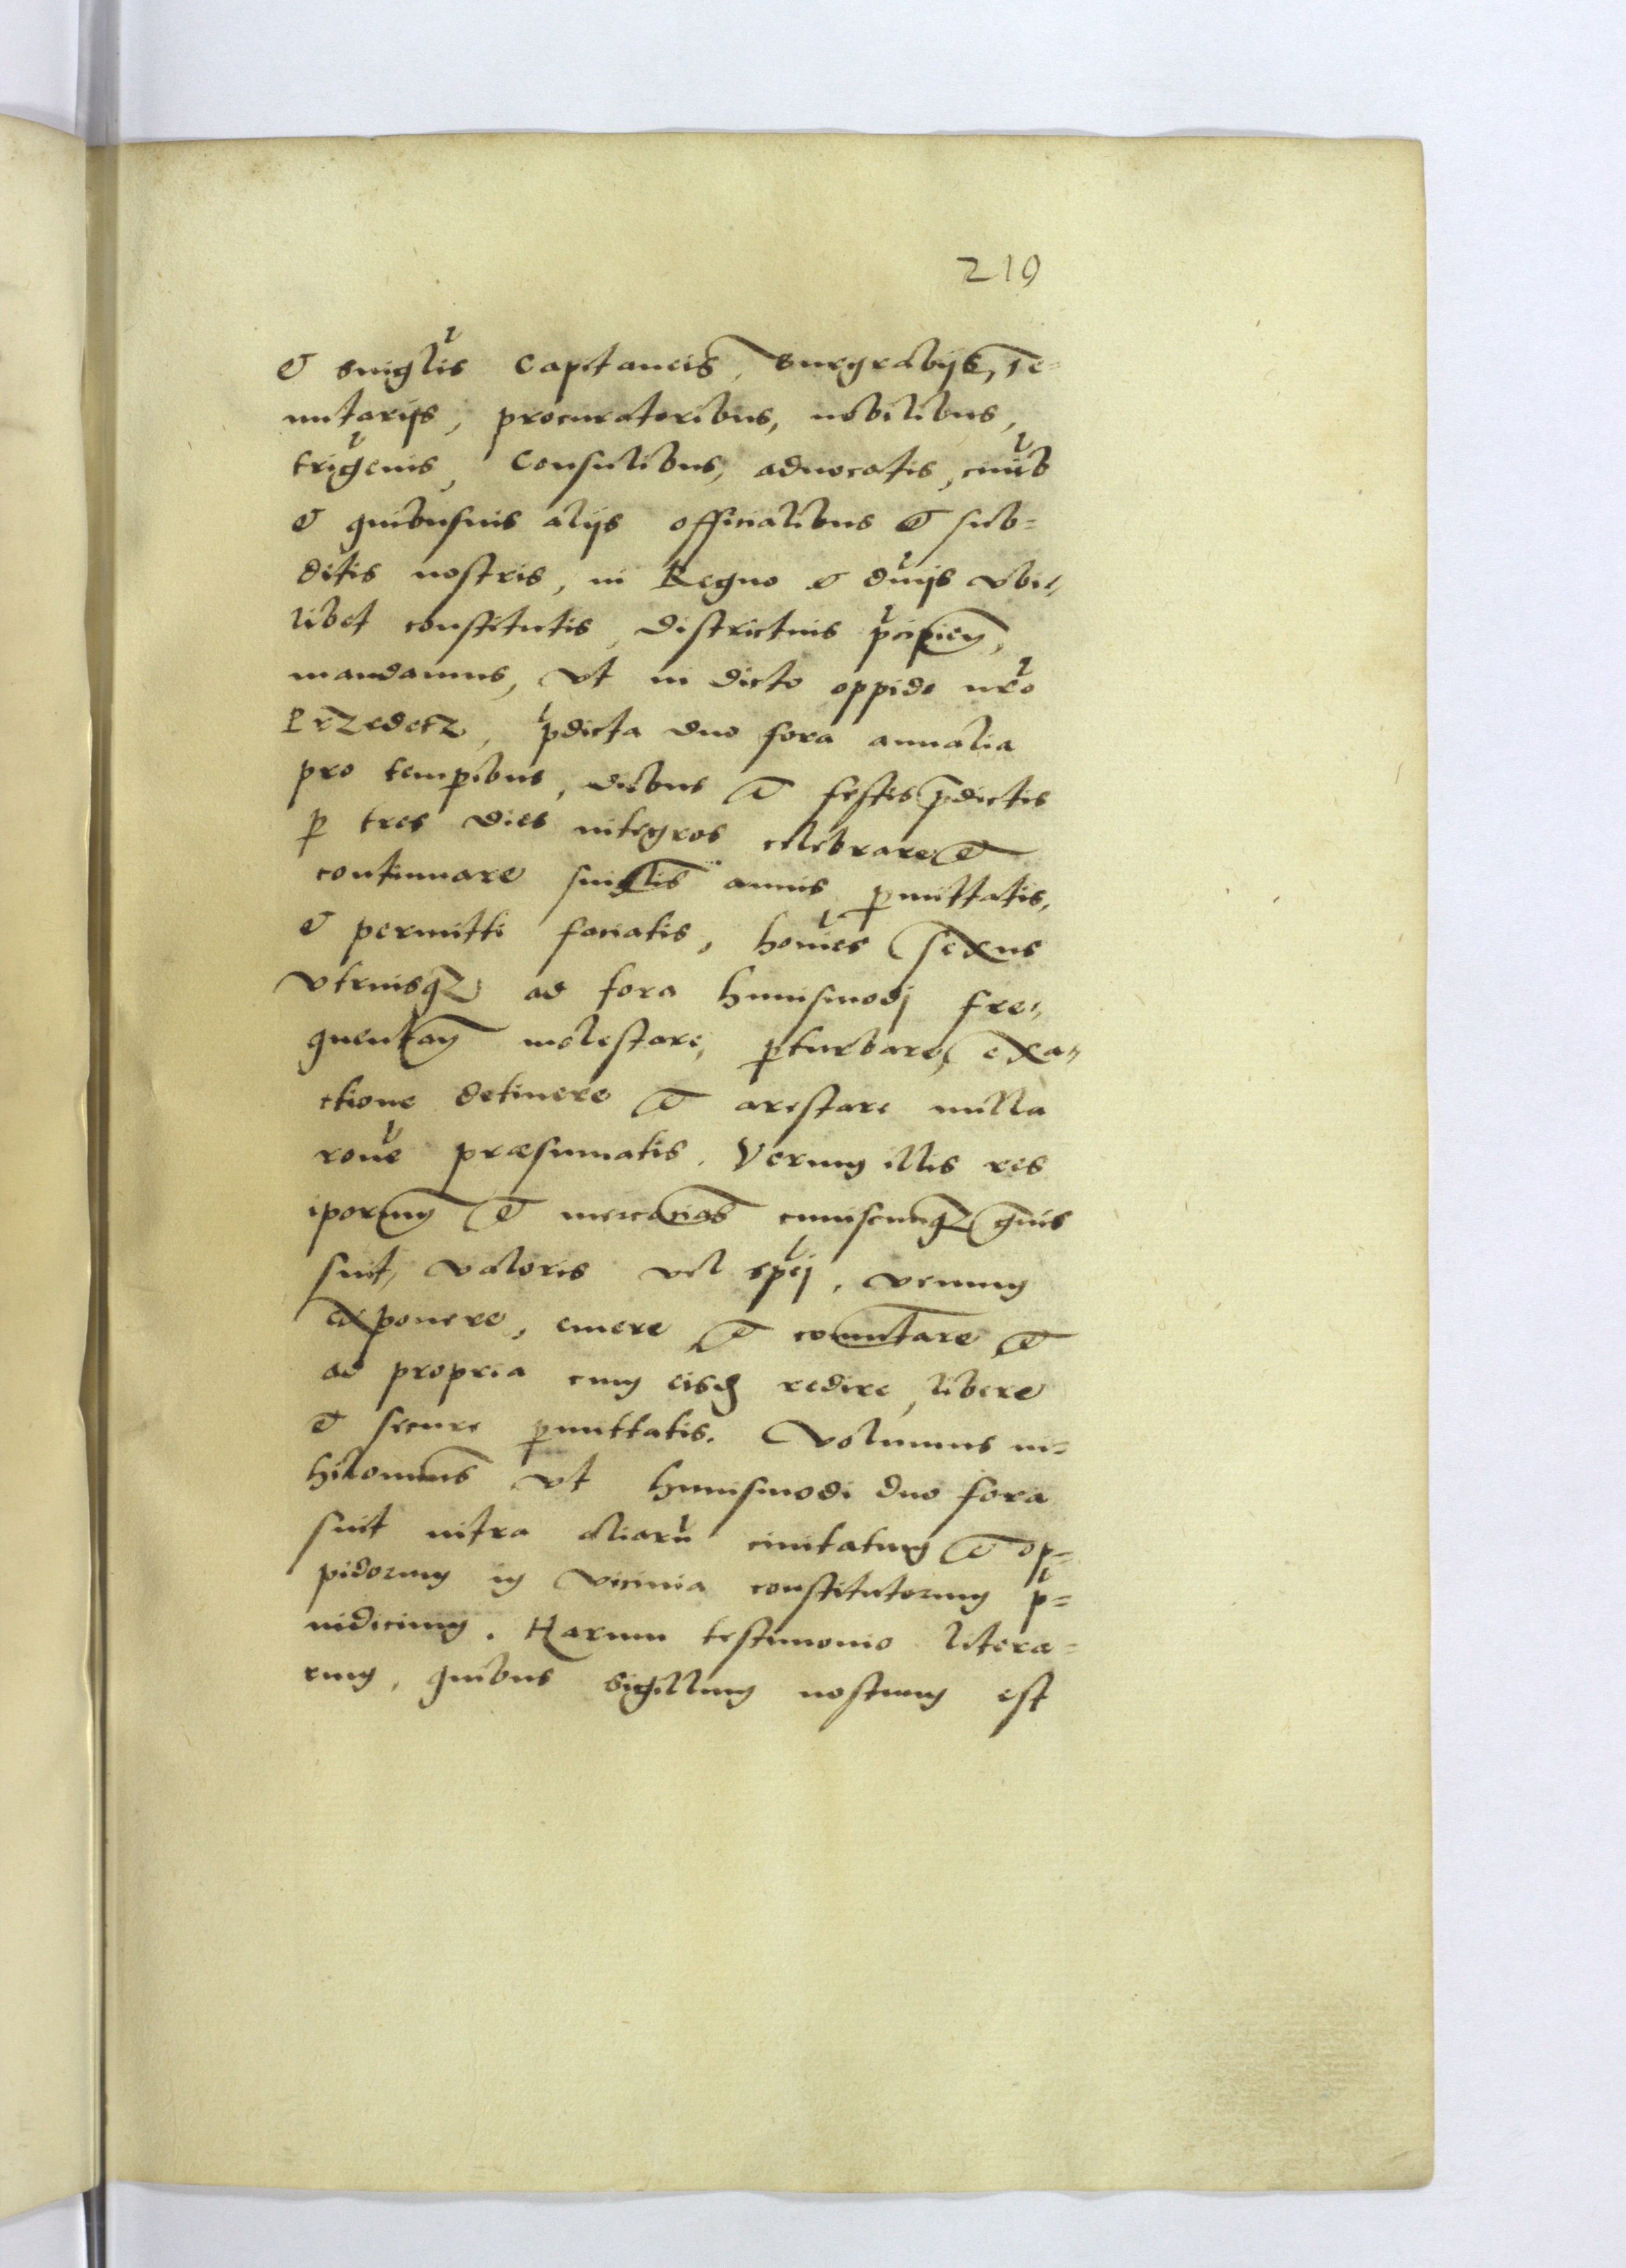 219
& singlis Capitaneis, Burgrabijs, Te-
nutarijs, procuratoribus, nobilibus,
trigenis, Consulibus, aduocatis, ciuib
& quibusuis alijs officialibus & sub=
ditis nostris, in Regno & dnijs vbi-
libet constitutis, districtius pcipien,
mandamus, vt in dicto oppido nro
Przedecz, pdicta duo fora annalia
pro tempibus, diebus & festis pdictis
p tres dies integros celebrare &
continuare singlis annis pmittatis,
& permitti faciatis, homies sexus
vtriusqz ad fora huiusmodj fre-
quentan molestare, pturbare, exa-
ctione detinere & arestare nulla
rone præsumatis. Verum illis res
iporum & mercancias cuiuscunqz gnis
sint, valoris vel spej, venum
exponere, emere & comutare &
ad propria cum eisd redire, libere
& secure pmittatis. Volumus ni=
hilominus vt huiusmodi duo fora
sint citra aliaru ciuitatum & op=
pidorum in vicinia constitutorum p=
iudicium. Harum testimonio litera=
rum, quibus Sigillum nostrum est